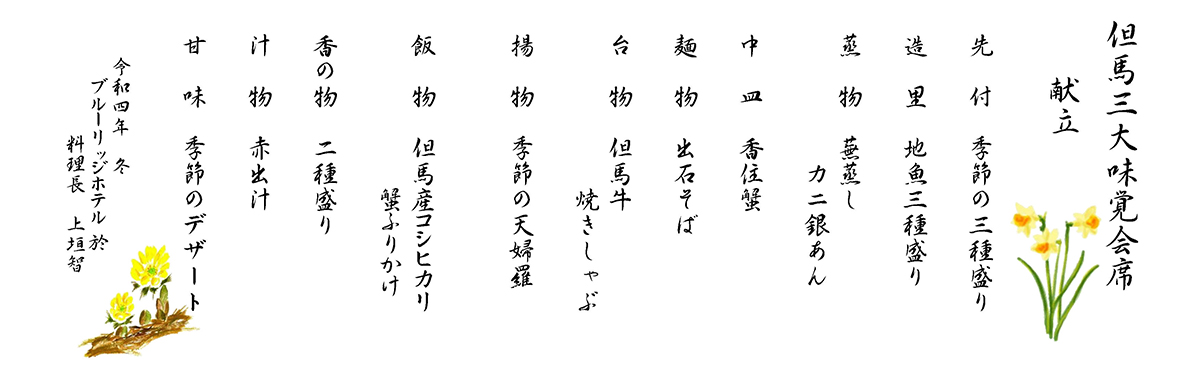 但馬三大味覚会席
献立
先付 季節の三種盛り
造里 地魚三種盛り
蒸物 蕪蒸し
カニ銀あん
中皿 香住蟹
麺物 出石そば
台物 但馬牛
焼きしゃぶ
揚物 季節の天婦羅
飯物 但馬産コシヒカリ
蟹ふりかけ
香の物 二種盛り
汁物 赤出汁
甘味 季節のデザート
令和四年 冬
ブルーリッジホテル 於
料理長 上垣智